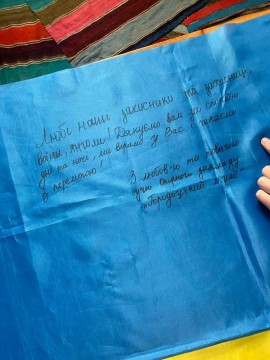 Любі наші захисники та захисниці,
воїни, янголи! Дякуємо вам за спокійні
дні та ночі, ми віримо у Вас і чекаємо
з перемогою!
З любов'ю та повагою
учні Опорного закладу
"Городоцький ліцей"